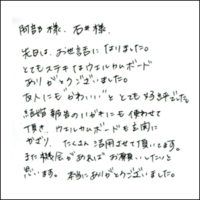 阿部様、石井様、
先日は、お世話になりました。
とてもステキなウェルカムボード
ありがとうございました。
友人にも"かわいい"ととても好評でした。
結婚報告のハガキにも使わせて
頂き、ウェルカムボードも玄関に
かざり、たくさん活用させて頂いてます。
また機会があればお願いしたいと
思います。本当にありがとうございました。